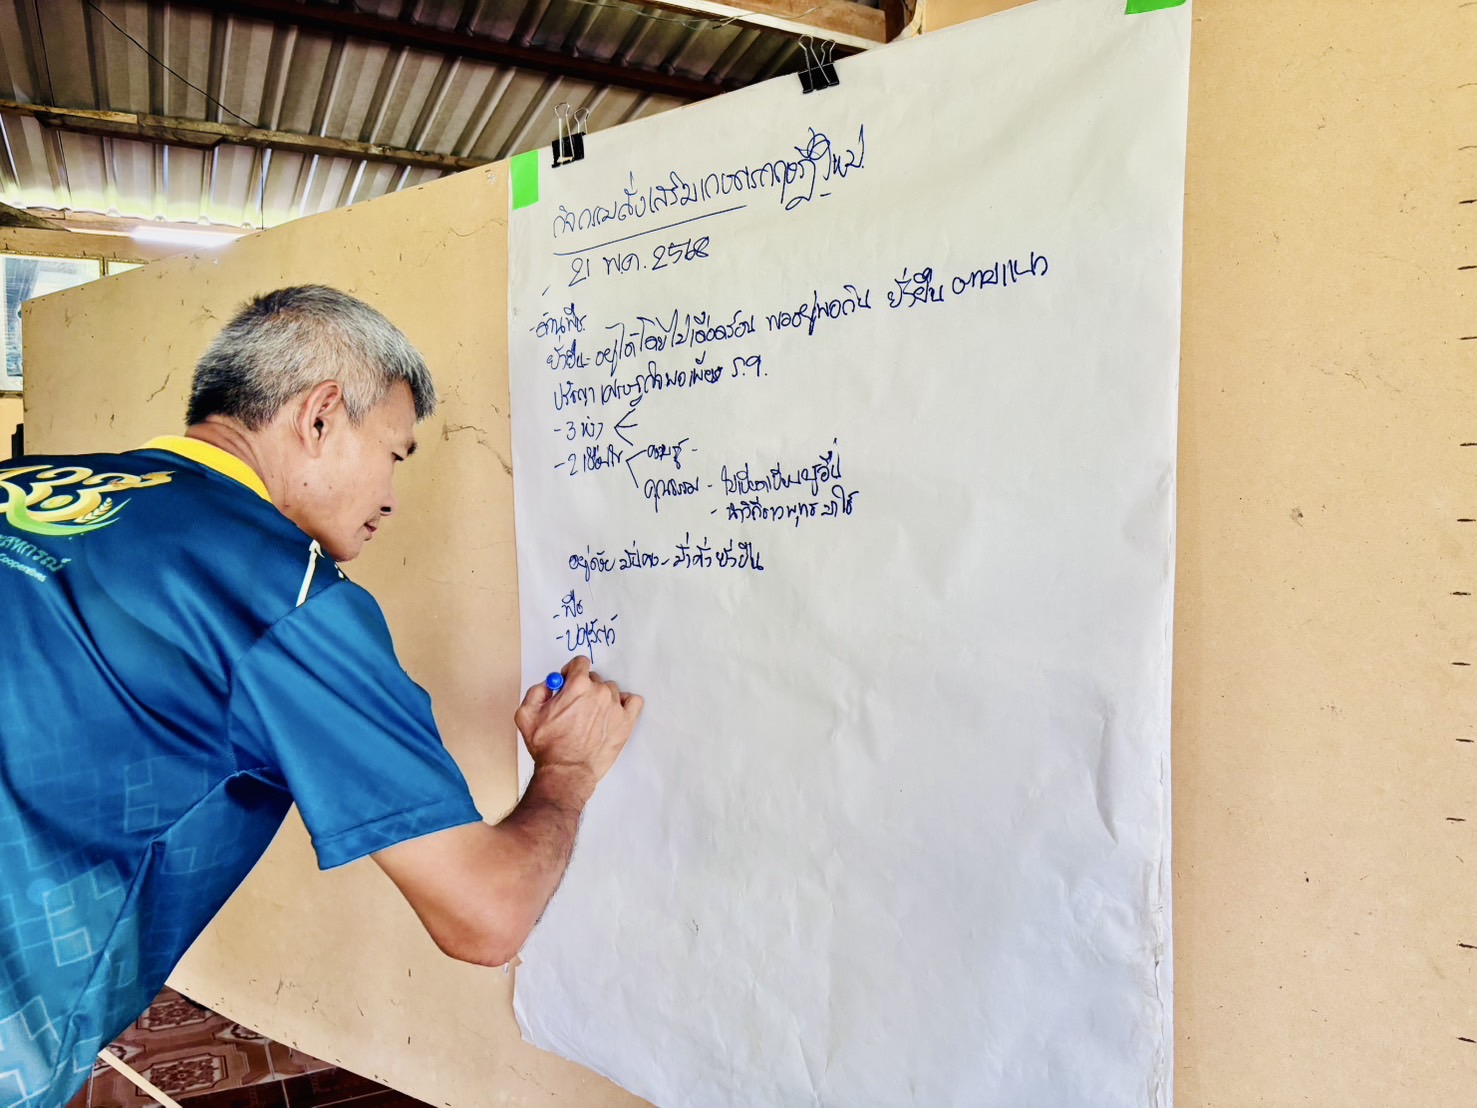 กิจกรรมส่งเสริมเกษตรทฤษฎีใหม่
21 พ.ค. 2568
- ด้านพืช
ยั่งยืน - อยู่ได้โดยไม่เดือดร้อน พออยู่พอกิน ยั่งยืน ตามแนว
ปรัชญาเศรษฐกิจพอเพียง ร.9.
- 3 ห่วง
- 2 เงื่อนไข
ความรู้ -
คุณธรรม - ไม่เบียดเบียนผู้อื่น
- นำวิถีชาวพุทธมาใช้
มั่งคั่ง ยั่งยืน
- พืช
- ปศุสัตว์
สหกรณ์
Cooperatives